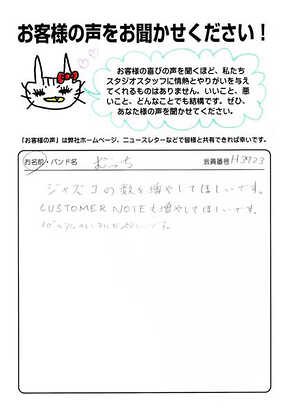 お客様の声をお聞かせください！
お客様の喜びの声を聞くほど、私たち
スタジオスタッフに情熱とやりがいを与え
てくれるものはありません。いいこと、悪
いこと、どんなことでも結構です。ぜひ、
あなた様の声を聞かせてください。
「お客様の声」は弊社ホームページ、ニュースレターなどで皆様と共有できれば幸いです。
お名前・バンド名 むっち 会員番号
ジャズコの数を増やしてほしいです。
CUSTOMER NOTEも増やしてほしいです。